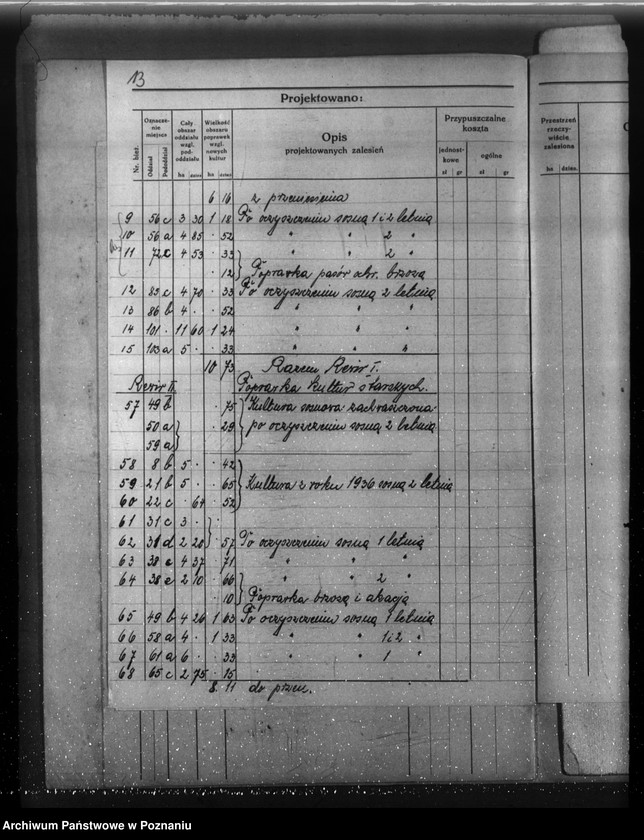 13
Projektowano:
Nr. bież.
Oznacze-
nie
miejsca
Oddział
Pododdział
Cały
obszar
oddziału
wzgl.
pod-
oddziału
ha
Wielkość
obszaru
poprawek
wzgl.
nowych
kultur
ha
Opis
projektowanych zalesień
Przypuszczalne
koszta
jednost-
kowe
ogólne
zł gr zł gr
Przestrzeń
rzeczy-
wiście
zalesiona
ha dzies.
6 16 z przeniesienia
9 56 c 3 30 1 18 Po oczyszczeniu sosną 1 i 2 letnią
10 56 a 4 85 . 52 " " 2 "
11 72 c 4 53 . 33 " " 2 "
. 12 Poprawka pasów ochr. brzozą
12 85 c 4 70 . 33 Po oczyszczeniu sosną 2 letnią
13 86 b 4 . . 52 " " "
14 101 . 11 60 1 24 " " "
15 103 a 5 . . 33 " " "
10 73 Razem Rewir I.
Rewir II. Poprawka kultur starszych.
57 49 b . 75 Kultura sosnowa zachwaszczona
50 a . 29 po oczyszczeniu sosną 2 letnią
59 a
58 8 b 5 . . 42
59 21 b 5 . . 65 Kultura z roku 1936 sosną 2 letnią
60 22 c . 64 . 52
61 31 c 3 . .
62 31 d 2 20 . 57 Po oczyszczeniu sosną 1 letnią
63 38 c 4 37 . 71 " " " "
64 38 e 2 10 . 66 " " 2 "
. 10 Poprawka brzozą i akacją
65 49 b 4 26 1 63 Po oczyszczeniu sosną 1 letnią
66 58 a 4 . 1 33 " " 1 i 2 "
67 61 a 6 . . 33 " " 1 "
68 65 c 2 75 . 15
8 11 do przen.
Archiwum Państwowe w Poznaniu